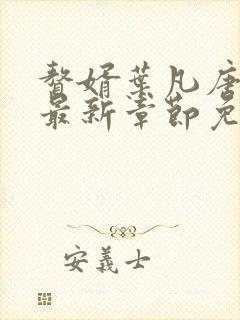 赘婿叶凡唐
最新章节免
安義士